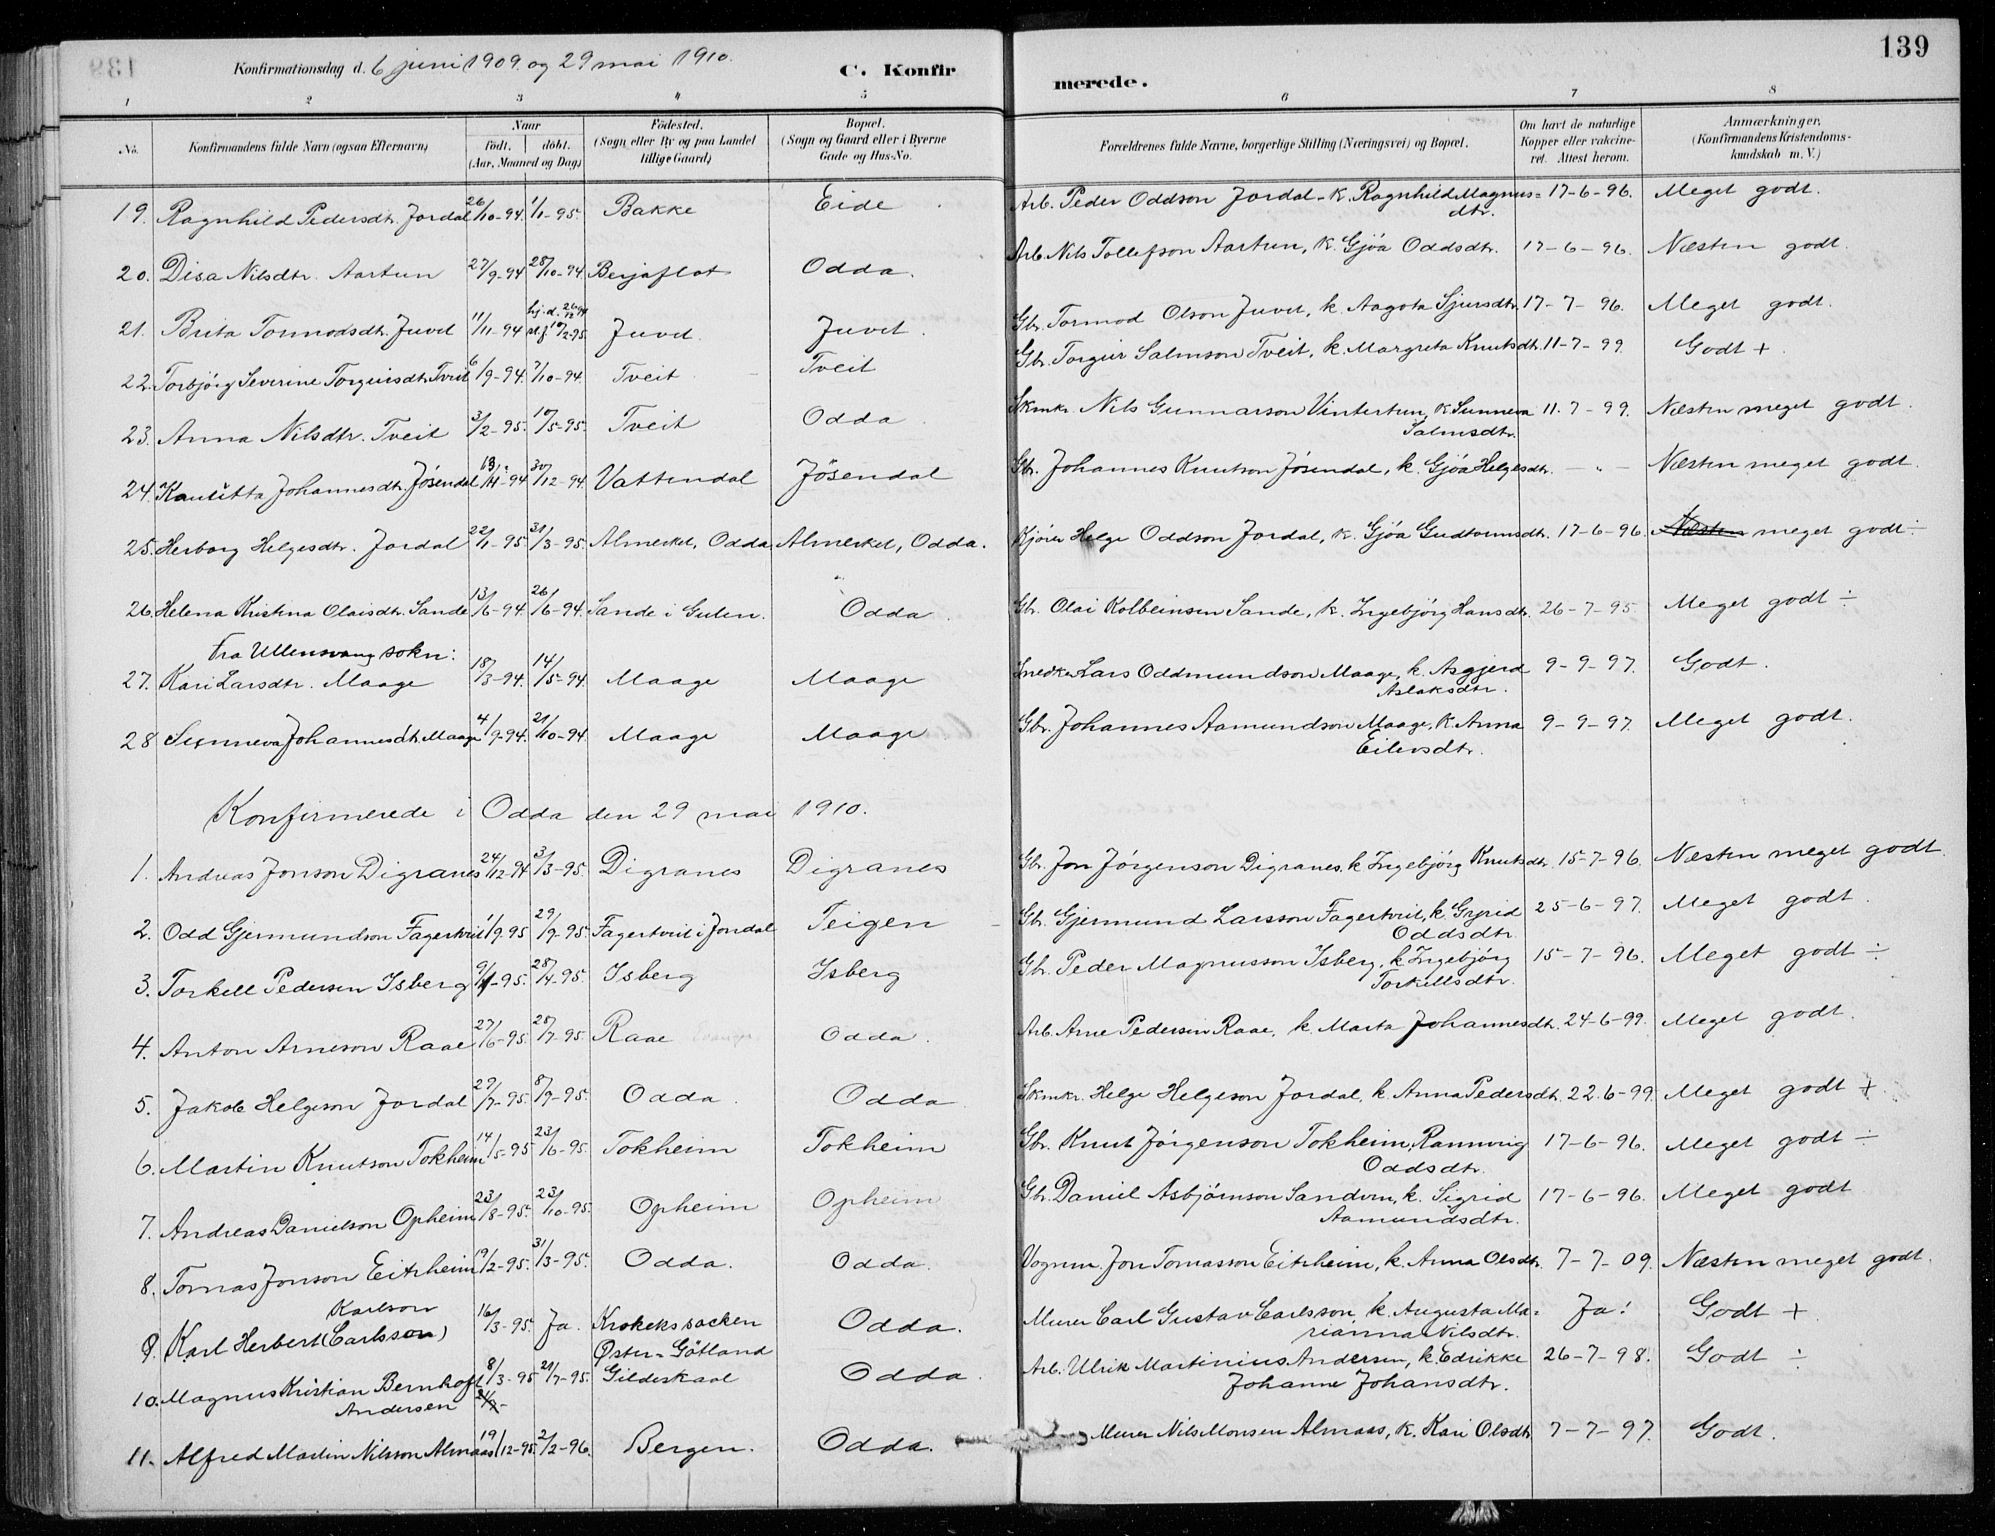 139
Konfirmationsdag d. 6 juni 1909. og 29 mai 1910.
C. Konfirmerede.
139
1 2 3 4 5 6 7 8
No. Konfirmandens fulde Navn (ogsaa Efternavn) Naar födt. döbt. (Aar, Maaned og Dag) Födested. (Sogn eller By og paa Landet tillige Gaard) Bopæl. (Sogn og Gaard eller i Byerne Gade og Hus-No. Forældrenes fulde Navne, borgerlige Stilling (Næringsvei) og Bopæl. Om havt de naturlige Kopper eller vakcineret. Attest herom. Anmærkninger, (Konfirmandens Kristendomskundskab m. V.)
19. Ragnhild Pedersdtr. Jordal 26/10-94. 1/1-95. Bakke Eide Arb. Peder Oddson Jordal - k. Ragnhild Magnus= 17-6-96. Meget godt.
dtr.
20. Disa Nilsdtr. Aartun 27/9-94 28/10-94. Berjaflot Odda. Arb. Nils Tollefson Aartun, k. Gjøa Oddsdtr. 17-6-96. Næsten godt.
21. Brita Tormodsdtr. Juvet 11/11-94 hj. d. 26/12-94 st.f. 10/2-95 Juvet. Juvet. Gbr. Tormod Olson Juvet, k. Aagota Sjursdtr. 17-7-96. Meget godt.
22. Torbjörg Severine Torgeirsdtr. Tveit 6/9-94. 7/10-94. Tveit Tveit Gbr. Torgeir Salmson Tveit, k. Margreta Knutsdtr. 11-7-99. Godt +
23. Anna Nilsdtr. Tveit 3/2-95. 19/5-95. Tveit Odda Skmkr. Nils Gunnarson Vintertun, k. Sunneva 11.7-99. Næsten meget godt.
Salmsdtr.
24. Johannesdtr. Jösendal 13/11-94 30/12-94. Vattendal Jösendal Gbr. Johannes Knutson Jösendal, k. Gjøa Helgesdtr. - " - Næsten meget godt.
25. Herborg Helgesdtr. Jordal 22/1-95 31/3-95. Almerket, Odda Almerket, Odda. Kjörer Helge Oddson Jordal, k. Gjøa Gudtormsdtr. 17-6-96. Næsten meget godt ÷
26. Helena Kristina Olaisdtr. Sande 13/6-94. 26/6-94. Sande i Gulen. Odda. Gbr. Olai Kolbeinsen Sande, k. Ingebjörg Hansdtr. 26-7-95. Meget godt ÷
Fra Ullensvang sokn:
27. Kari Larsdtr. Maage 18/3-94. 14/5-94. Maage Maage Snedker Lars Oddmundson Maage, k. Asgjerd 9-9-97. Godt.
Aslaksdtr.
28 Sunneva Johannesdtr. Maage 4/9-94. 21/10-94 Maage Maage Gbr. Johannes Aamundson Maage, k. Anna 9-9-97. Meget godt.
Eilevsdtr.
Konfirmerede i Odda den 29 mai 1910.
1. Andreas Jonson Digranes 24/12-94 3/3-95. Digranes Digranes Gbr. Jon Jörgenson Digranes, k. Ingebjörg Knutsdtr. 15-7-96. Næsten meget godt.
2. Odd Gjermundson Fagertveit 1/9-95 29/9-95. Fagertveit i Jordal Teigen Gbr. Gjermund Larsson Fagertveit, k. Gyrid 25-6-97. Meget godt.
Oddsdtr.
3. Torkell Pedersen Isberg 9/1-95. 28/4-95. Isberg Isberg Gbr. Peder Magnusson Isberg, k. Ingebjörg 15-7-96. Meget godt ÷
Torkellsdtr.
4. Anton Arneson Raae 27/6-95. 28/7-95. Raae Odda. Arb. Arne Pedersen Raae, k. Marta Johannesdtr. 24-6-99. Meget godt.
5. Jakob Helgeson Jordal 29/7-95. 8/9-95. Odda. Odda Skmkr. Helge Helgeson Jordal, k. Anna Pedersdtr. 22.6-99. Meget godt +
6. Martin Knutson Tokheim 14/5-95 23/6-95. Tokheim Tokheim Gbr. Knut Jörgenson Tokheim, Rannveig 17-6-96. Meget godt ÷
Oddsdtr.
7. Andreas Danielson Opheim 23/8-95. 23/10-95. Opheim Opheim Gbr. Daniel Asbjörnson Sandven, k. Sigrid 17-6-96. Meget godt
Aamundsdtr.
8. Tomas Jonson Eitrheim 19/2-95. 31/3-95. Odda. Odda. Vognm. Jon Tomasson Eitrheim, k. Anna Olsdtr. 7-7-09. Næsten meget godt.
Karlson
9. Karl Herbert (Carlsson) 16/3-95. Ja. Krokeks socken Odda. Murer Carl Gustav Carlsson, k. Augusta Ma= Ja! Godt +
Öster-Götland rianna Nilsdtr.
10. Magnus Kristian Bernhoft 8/3-95 21/7-95. Gildeskaal Odda. Arb. Ulrik Martinius Andersen, k. Edrikke 26-7-98. Godt ÷
Andersen Johanne Johansdtr.
11. Alfred Martin Nilsson Almaas 19/12-95. 2/2-96. Bergen. Odda. Murer Nils Monsen Almaas, k. Kari Olsdtr. 7-7-97. Godt.